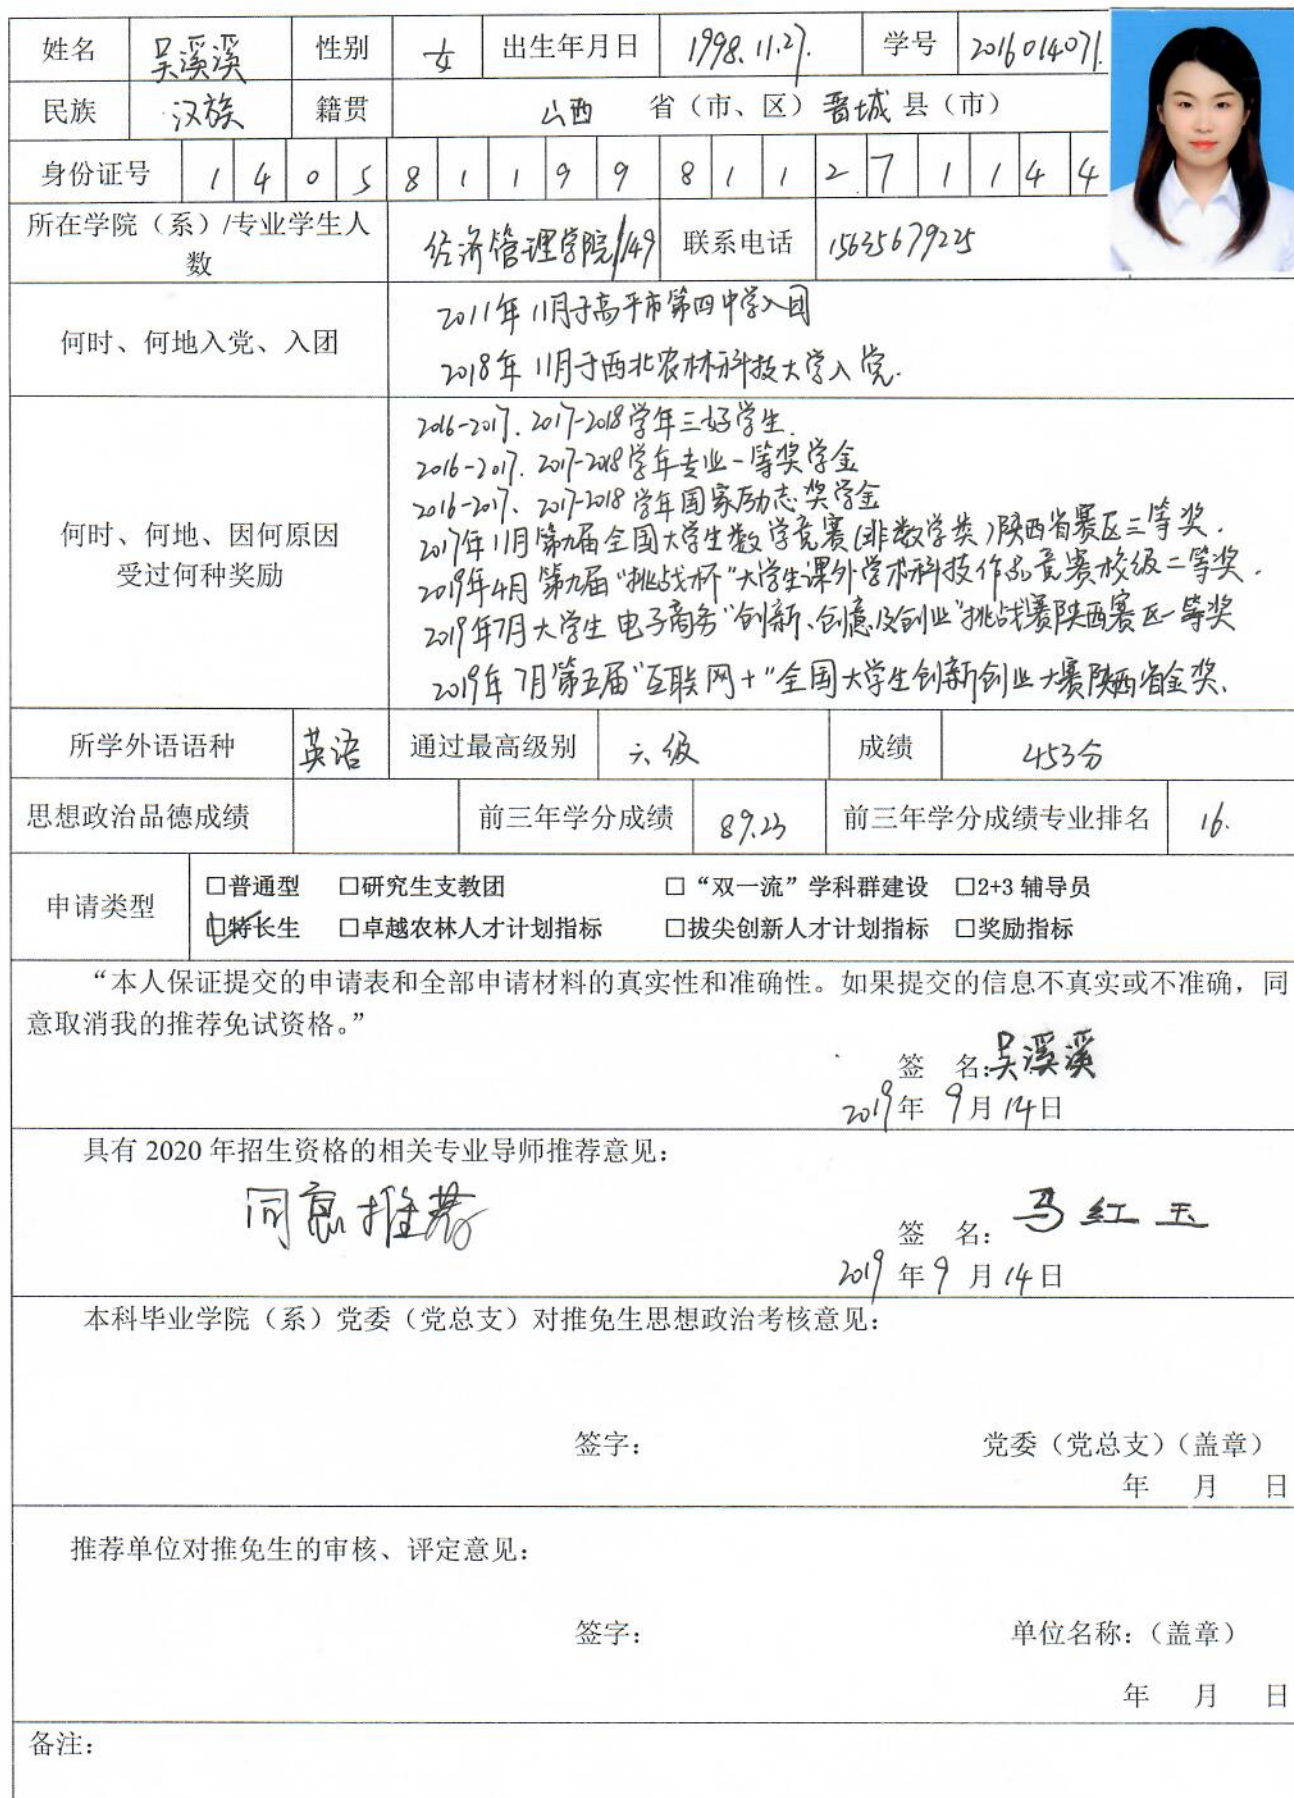 姓名 吴溪溪 性别 女 出生年月日 1998.11.27. 学号 2016014071.
民族 汉族 籍贯 山西 省（市、区）晋城 县（市）
身份证号 1 4 0 5 8 1 1 9 9 8 1 1 2 7 1 1 4 4
所在学院（系）/专业学生人
数 经济管理学院/149 联系电话 15635679225
2011年11月于高平市第四中学入团
何时、何地入党、入团
2018年11月于西北农林科技大学入党.
2016-2017、2017-2018学年三好学生.
2016-2017、2017-2018学年专业一等奖学金
2016-2017、2017-2018学年国家励志奖学金
何时、何地、因何原因
受过何种奖励
2017年11月第九届全国大学生数学竞赛(非数学类)陕西省赛区三等奖.
2019年4月第九届“挑战杯”大学生课外学术科技作品竞赛校级二等奖.
2019年7月大学生电子商务“创新、创意及创业”挑战赛陕西赛区一等奖
2019年7月第五届“互联网+”全国大学生创新创业大赛陕西省金奖.
所学外语语种 英语 通过最高级别 六级 成绩 453分
思想政治品德成绩 前三年学分成绩 89.23 前三年学分成绩专业排名 16.
申请类型
□普通型 □研究生支教团 □“双一流”学科群建设 □2+3 辅导员
□特长生 □卓越农林人才计划指标 □拔尖创新人才计划指标 □奖励指标
“本人保证提交的申请表和全部申请材料的真实性和准确性。如果提交的信息不真实或不准确，同
意取消我的推荐免试资格。”
签 名:吴溪溪
2019年 9月14日
具有 2020 年招生资格的相关专业导师推荐意见：
同意推荐
签 名：马红玉
2019年9月14日
本科毕业学院（系）党委（党总支）对推免生思想政治考核意见：
签字： 党委（党总支）（盖章）
年 月 日
推荐单位对推免生的审核、评定意见：
签字： 单位名称：（盖章）
年 月 日
备注：